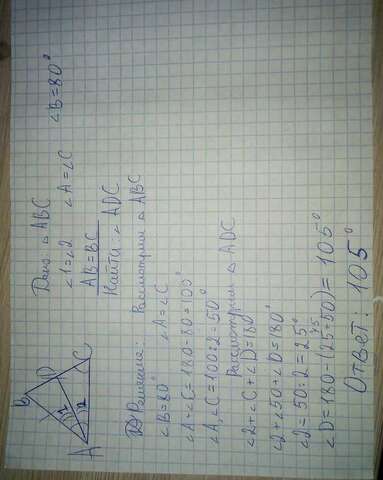 B
D
1
2
A
C
Дано: ▵ ABC
∠1=∠2 ∠A=∠C ∠B=80°
AB=BC
Найти: ∠ ADC
Решение: Рассмотрим ▵ ABC
∠B=80° ∠A=∠C
∠A+∠C=180-80=100°
∠A,∠C=100:2=50°
Рассмотрим ▵ ADC
∠2+∠C+∠D=180°
∠2+∠50+∠D=180°
∠2=50:2=25°
∠D=180-(25+50)=105°
75
Ответ: 105°